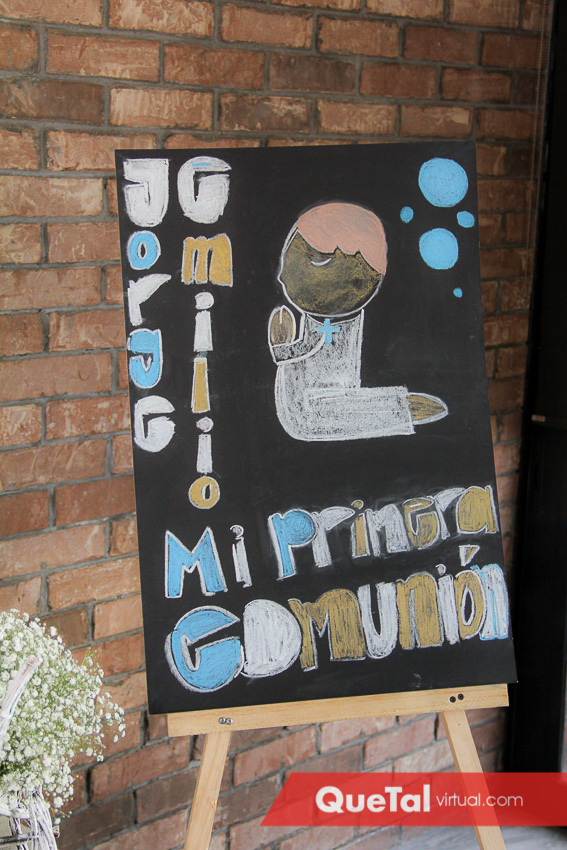 Jorge
Emilio
Mi primera
Comunión
QueTal virtual.com